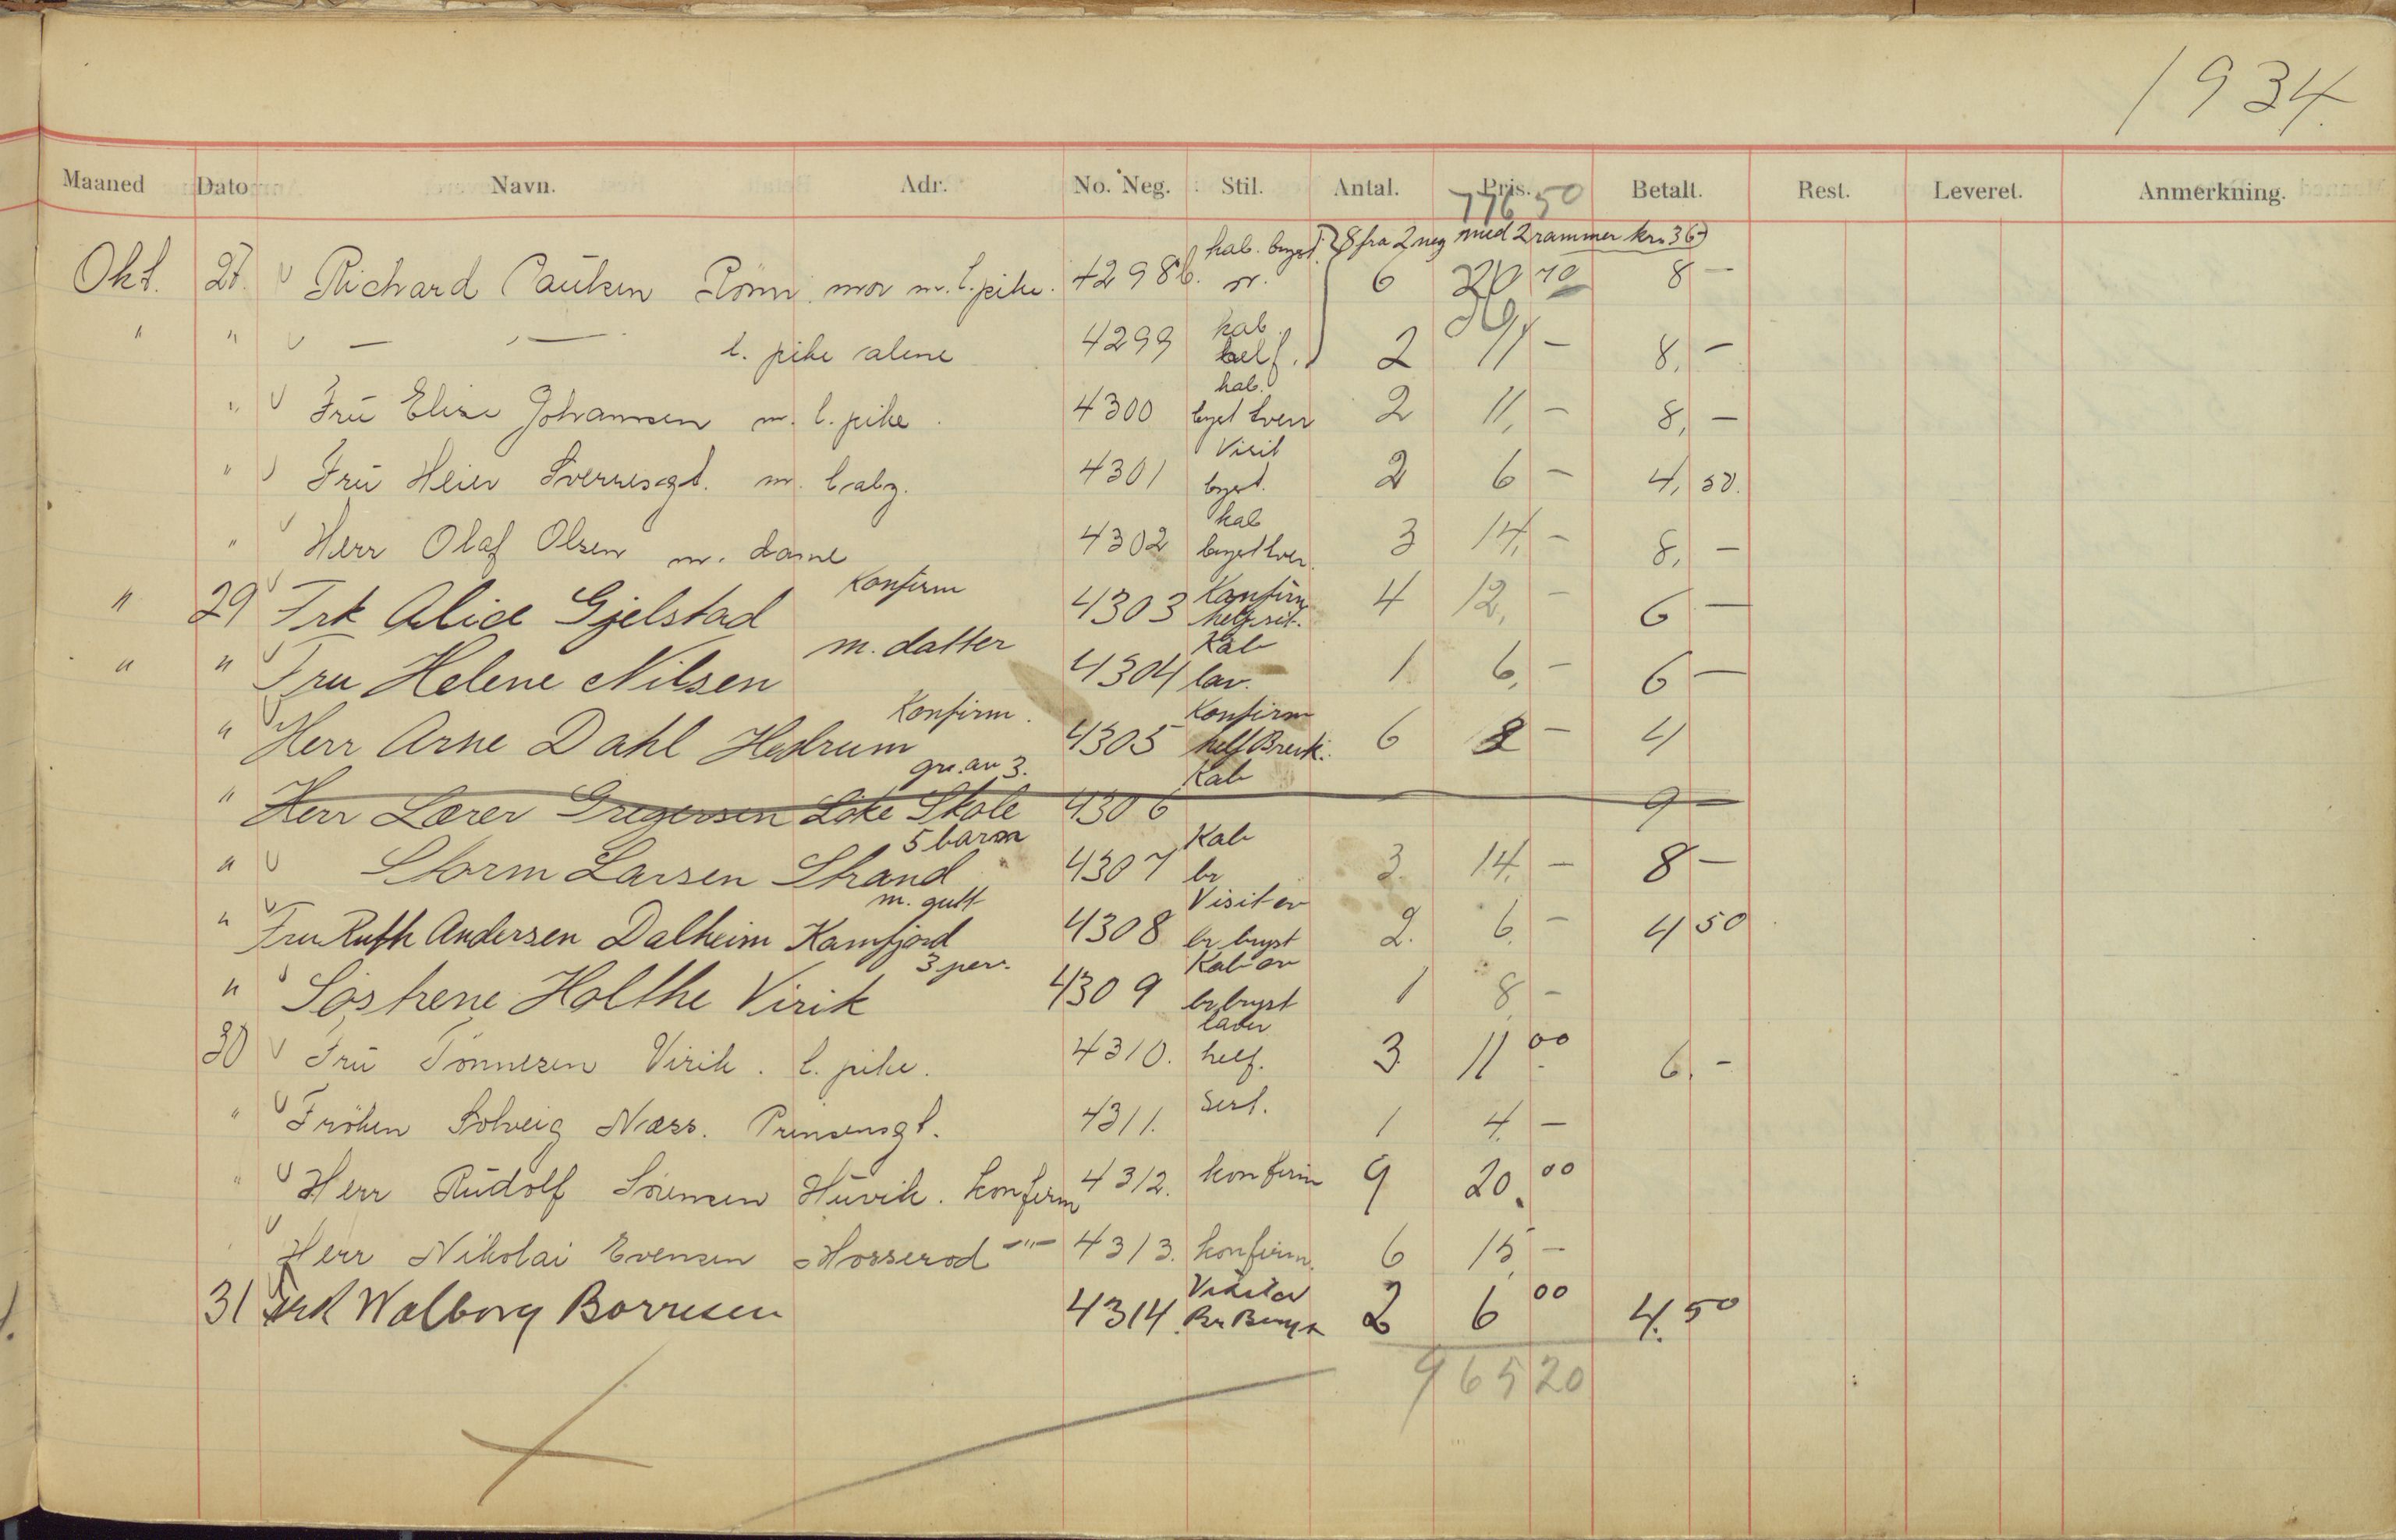 1934
Maaned Dato Navn. Adr. No. Neg. Stil. Antal. Pris. Betalt. Rest. Leveret. Anmerkning.
776 50
kab. bryst. 8 fra 2 neg med 2 rammer kr. 36
Okt. 27. Richard Paulsen Rönn. mor m. l. pike. 4298 6 8 —
kab.
" " — — l. pike alene 4299 helf. 2 11 — 8, —
kab.
" Frü Elise Johannsen m. l. pike. 4300 bryst tverr 2 11, — 8, —
Visit
" Frü Heier Sverresgt. m. baby. 4301 bryst. 2 6 — 4, 50.
kab
" Herr Olaf Olsen m. dame 4302 bryst tver. 3 14, — 8, —
Konfirm Konfirm
" 29 Frk Alice Gjelstad 4303 helf. sit. 4 12, — 6 —
m. datter Kab
" " Fru Helene Nilsen 4304 lav. 1 6, — 6 —
Konfirm. Konfirm
" Herr Arne Dahl Hedrum 4305 helf Brevk. 6 8 — 4
gr. av 3. Kab
" Herr Lærer Gregersen Löke Skole 4306 9 —
5 barn Kab
" Storm Larsen Strand 4307 br 3. 14. — 8 —
m. gutt Visit ov
" Fru Ruth Andersen Dalheim Kamfjord 4308 br bryst 2. 6. — 4 50
3 per. Kab ov
" Söstrene Holthe Virik 4309 br bryst 1 8, —
30 Frü Tönnesen Virik. l. pike. 4310. helf. 3 11 00 6, —
" Fröken Solveig Næss. Prinsensgt. 4311. Sert. 1 4, —
" Herr Rüdolf Sörensen Hüvik. konfirm 4312. konfirm 9 20. 00
Herr Nikolai Evensen Mosserod —"— 4313. konfirm. 6 15, —
Visit ov
31 Frk Walborg Borresen 4314. Br Bryst 2 6 00 4. 50
965 20